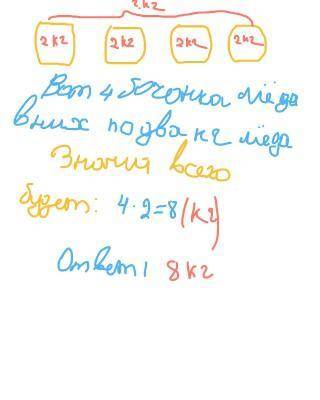 ? кг
2 кг 2 кг 2 кг 2 кг
Вот 4 бочонка мёда
в них по два кг мёда
Значит всего
будет: 4·2=8(кг)
Ответ: 8 кг